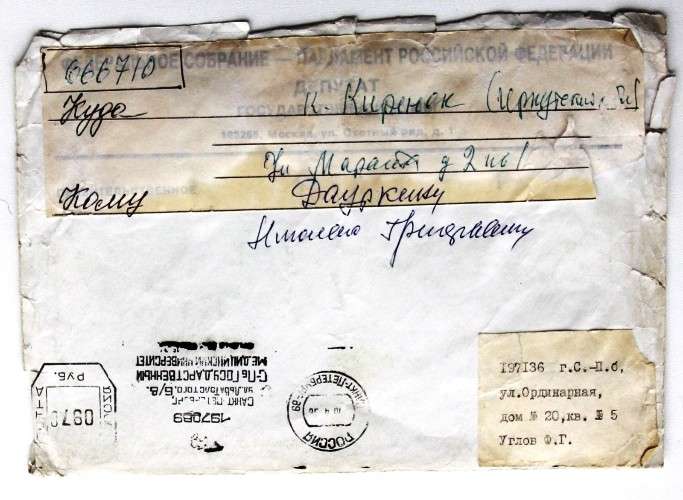 666710
СОБРАНИЕ — ПАРЛАМЕНТ РОССИЙСКОЙ ФЕДЕРАЦИИ
ДЕПУТАТ
Куда
г. Киренск (Иркутская
Москва, ул. Охотный ряд, д. 1
Ул Марата д 2 кв 1
Кому Дауркину
Григорьевичу
РУБ.
0970
ПОЧТА
САНКТ-ПЕТЕРБУРГ-89
РОССИЯ
МЕДИЦИНСКИЙ УНИВЕРСИТЕТ
С-Пб ГОСУДАРСТВЕННЫЙ
ул. Льва Толстого, 6/8.
САНКТ-ПЕТЕРБУРГ
197089
197136 г.С.-П.б,
ул.Ординарная,
дом № 20,кв. № 5
Углов Ф.Г.